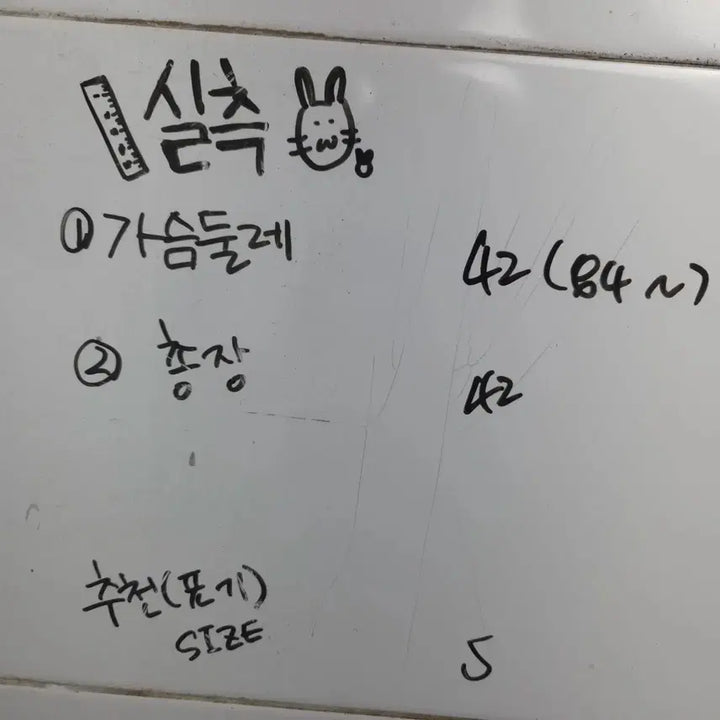 실측
① 가슴둘레 42 (84 ~)
② 총장 42
추천(표기)
SIZE S